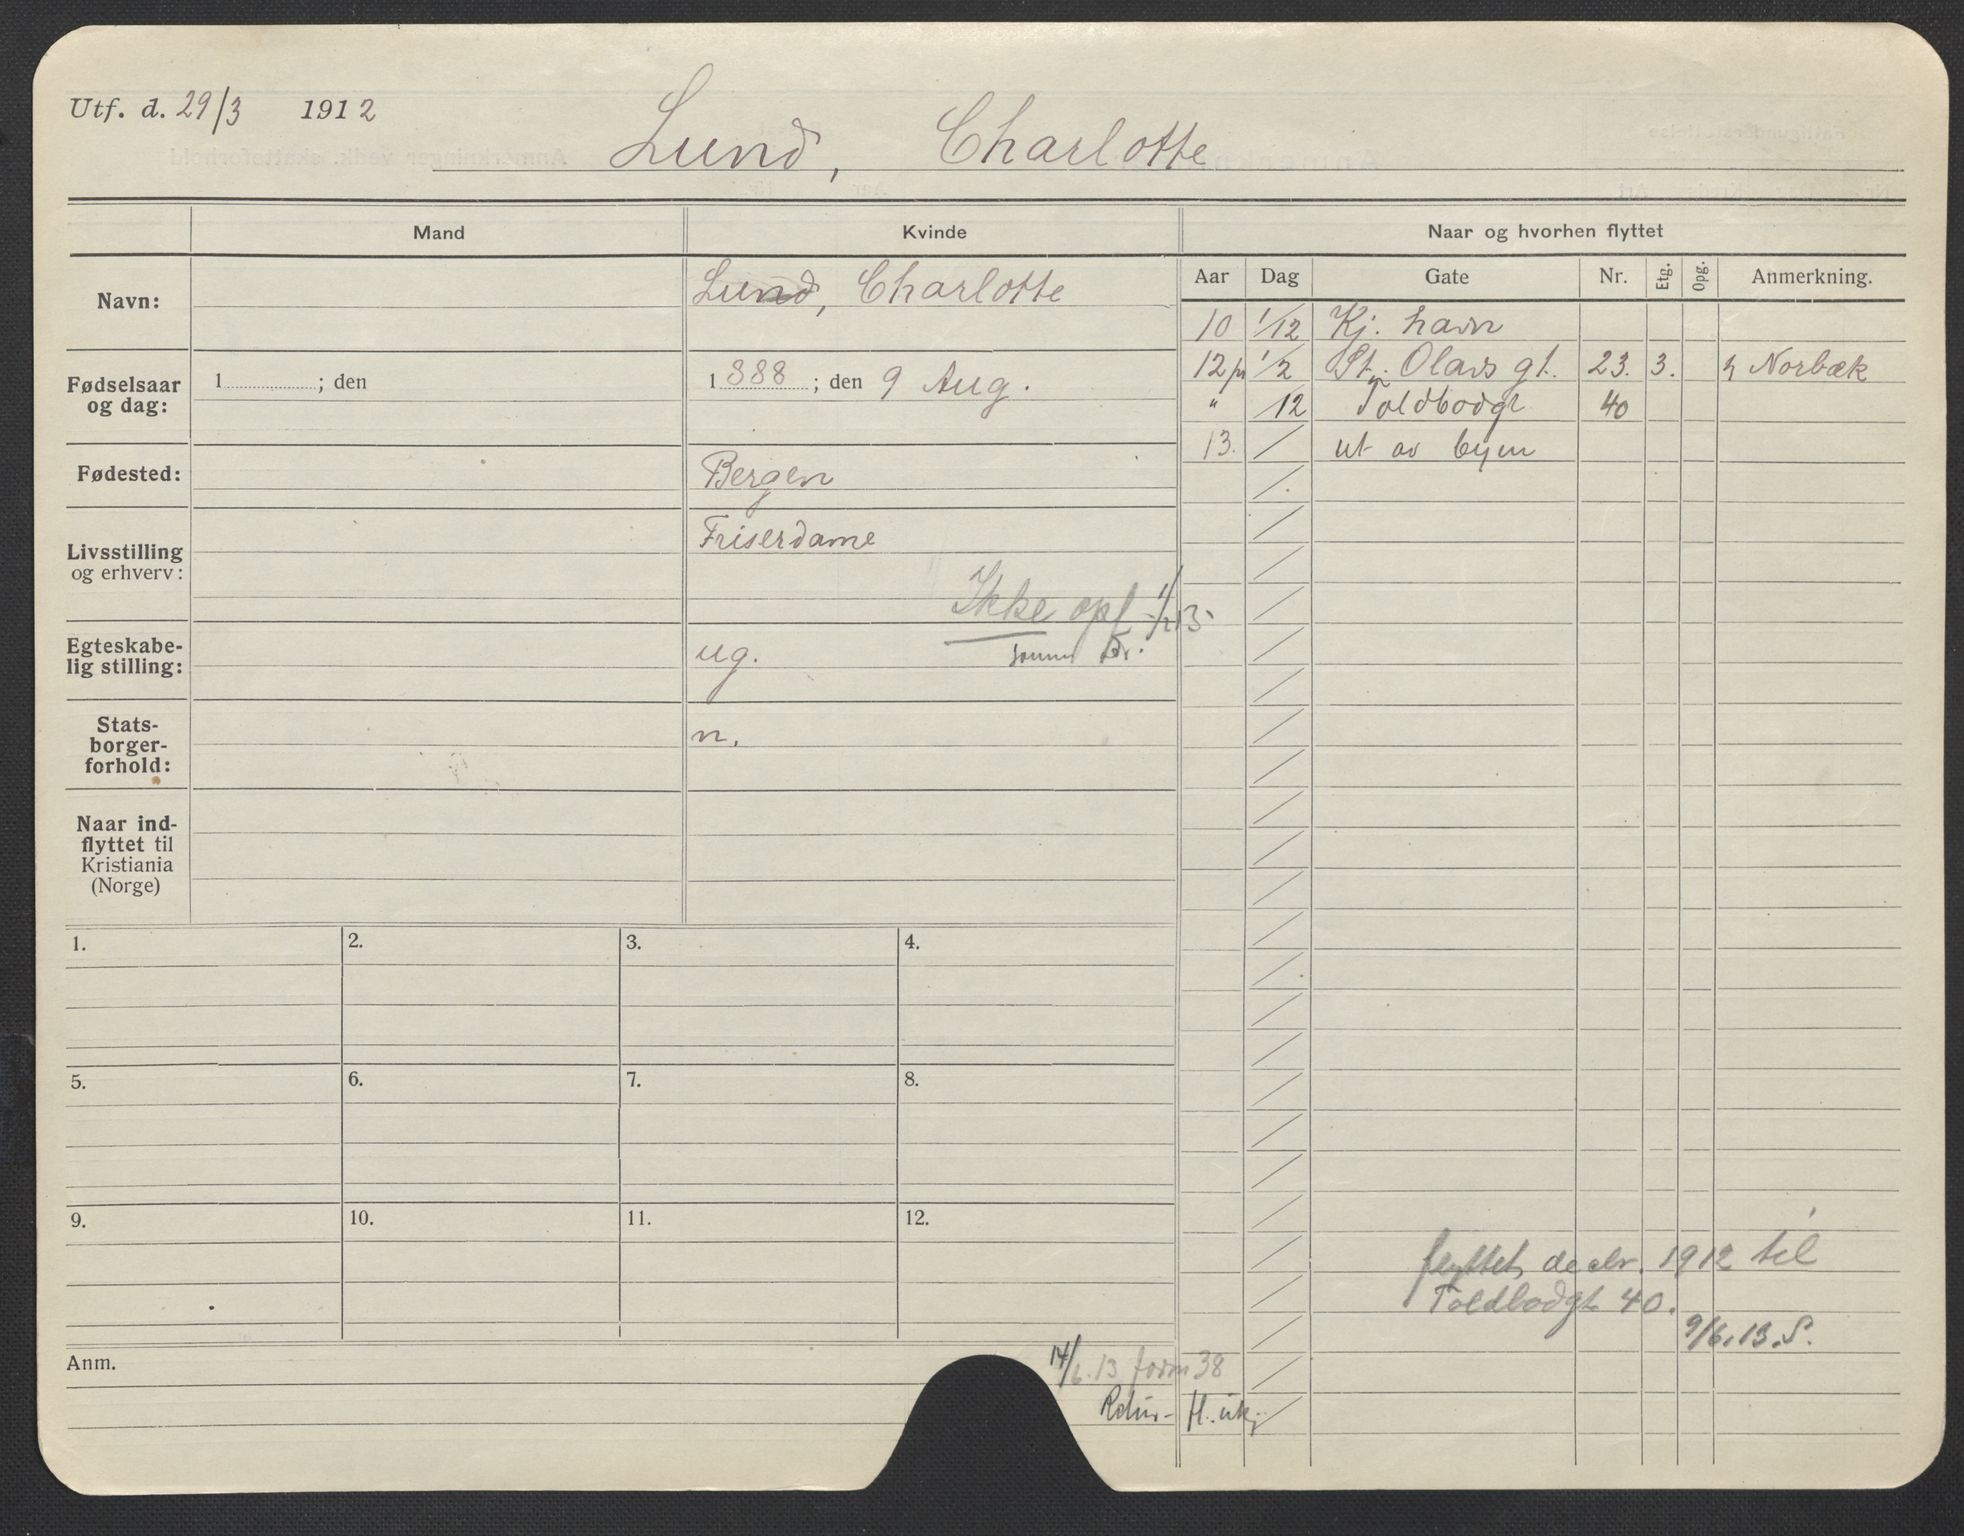 Utf. d. 29/3 1912
Lund, Charlotte
Mand
Kvinde
Naar og hvorhen flyttet
Aar Dag Gate Nr. Etg. Opg. Anmerkning.
Navn:
Lund, Charlotte
Fødselsaar
og dag:
1 ; den
1 888 ; den 9 Aug.
Fødested:
Bergen
Livsstilling
og erhverv:
Friserdame
Ikke opf
Egteskabe-
lig stilling:
ug.
Stats-
borger-
forhold:
n.
Naar ind-
flyttet til
Kristiania
(Norge)
10 1/12 Kj. havn
12 1/2 St. Olavs gt. 23. 3. Norbæk
" /12 Toldbodgt 40
13. / ut av byen
1. 2. 3. 4.
5. 6. 7. 8.
9. 10. 11. 12.
flyttet decbr. 1912 til
Toldbodgt 40.
9/6.13.S.
Anm.
14/6.13 form 38
H. ukj.